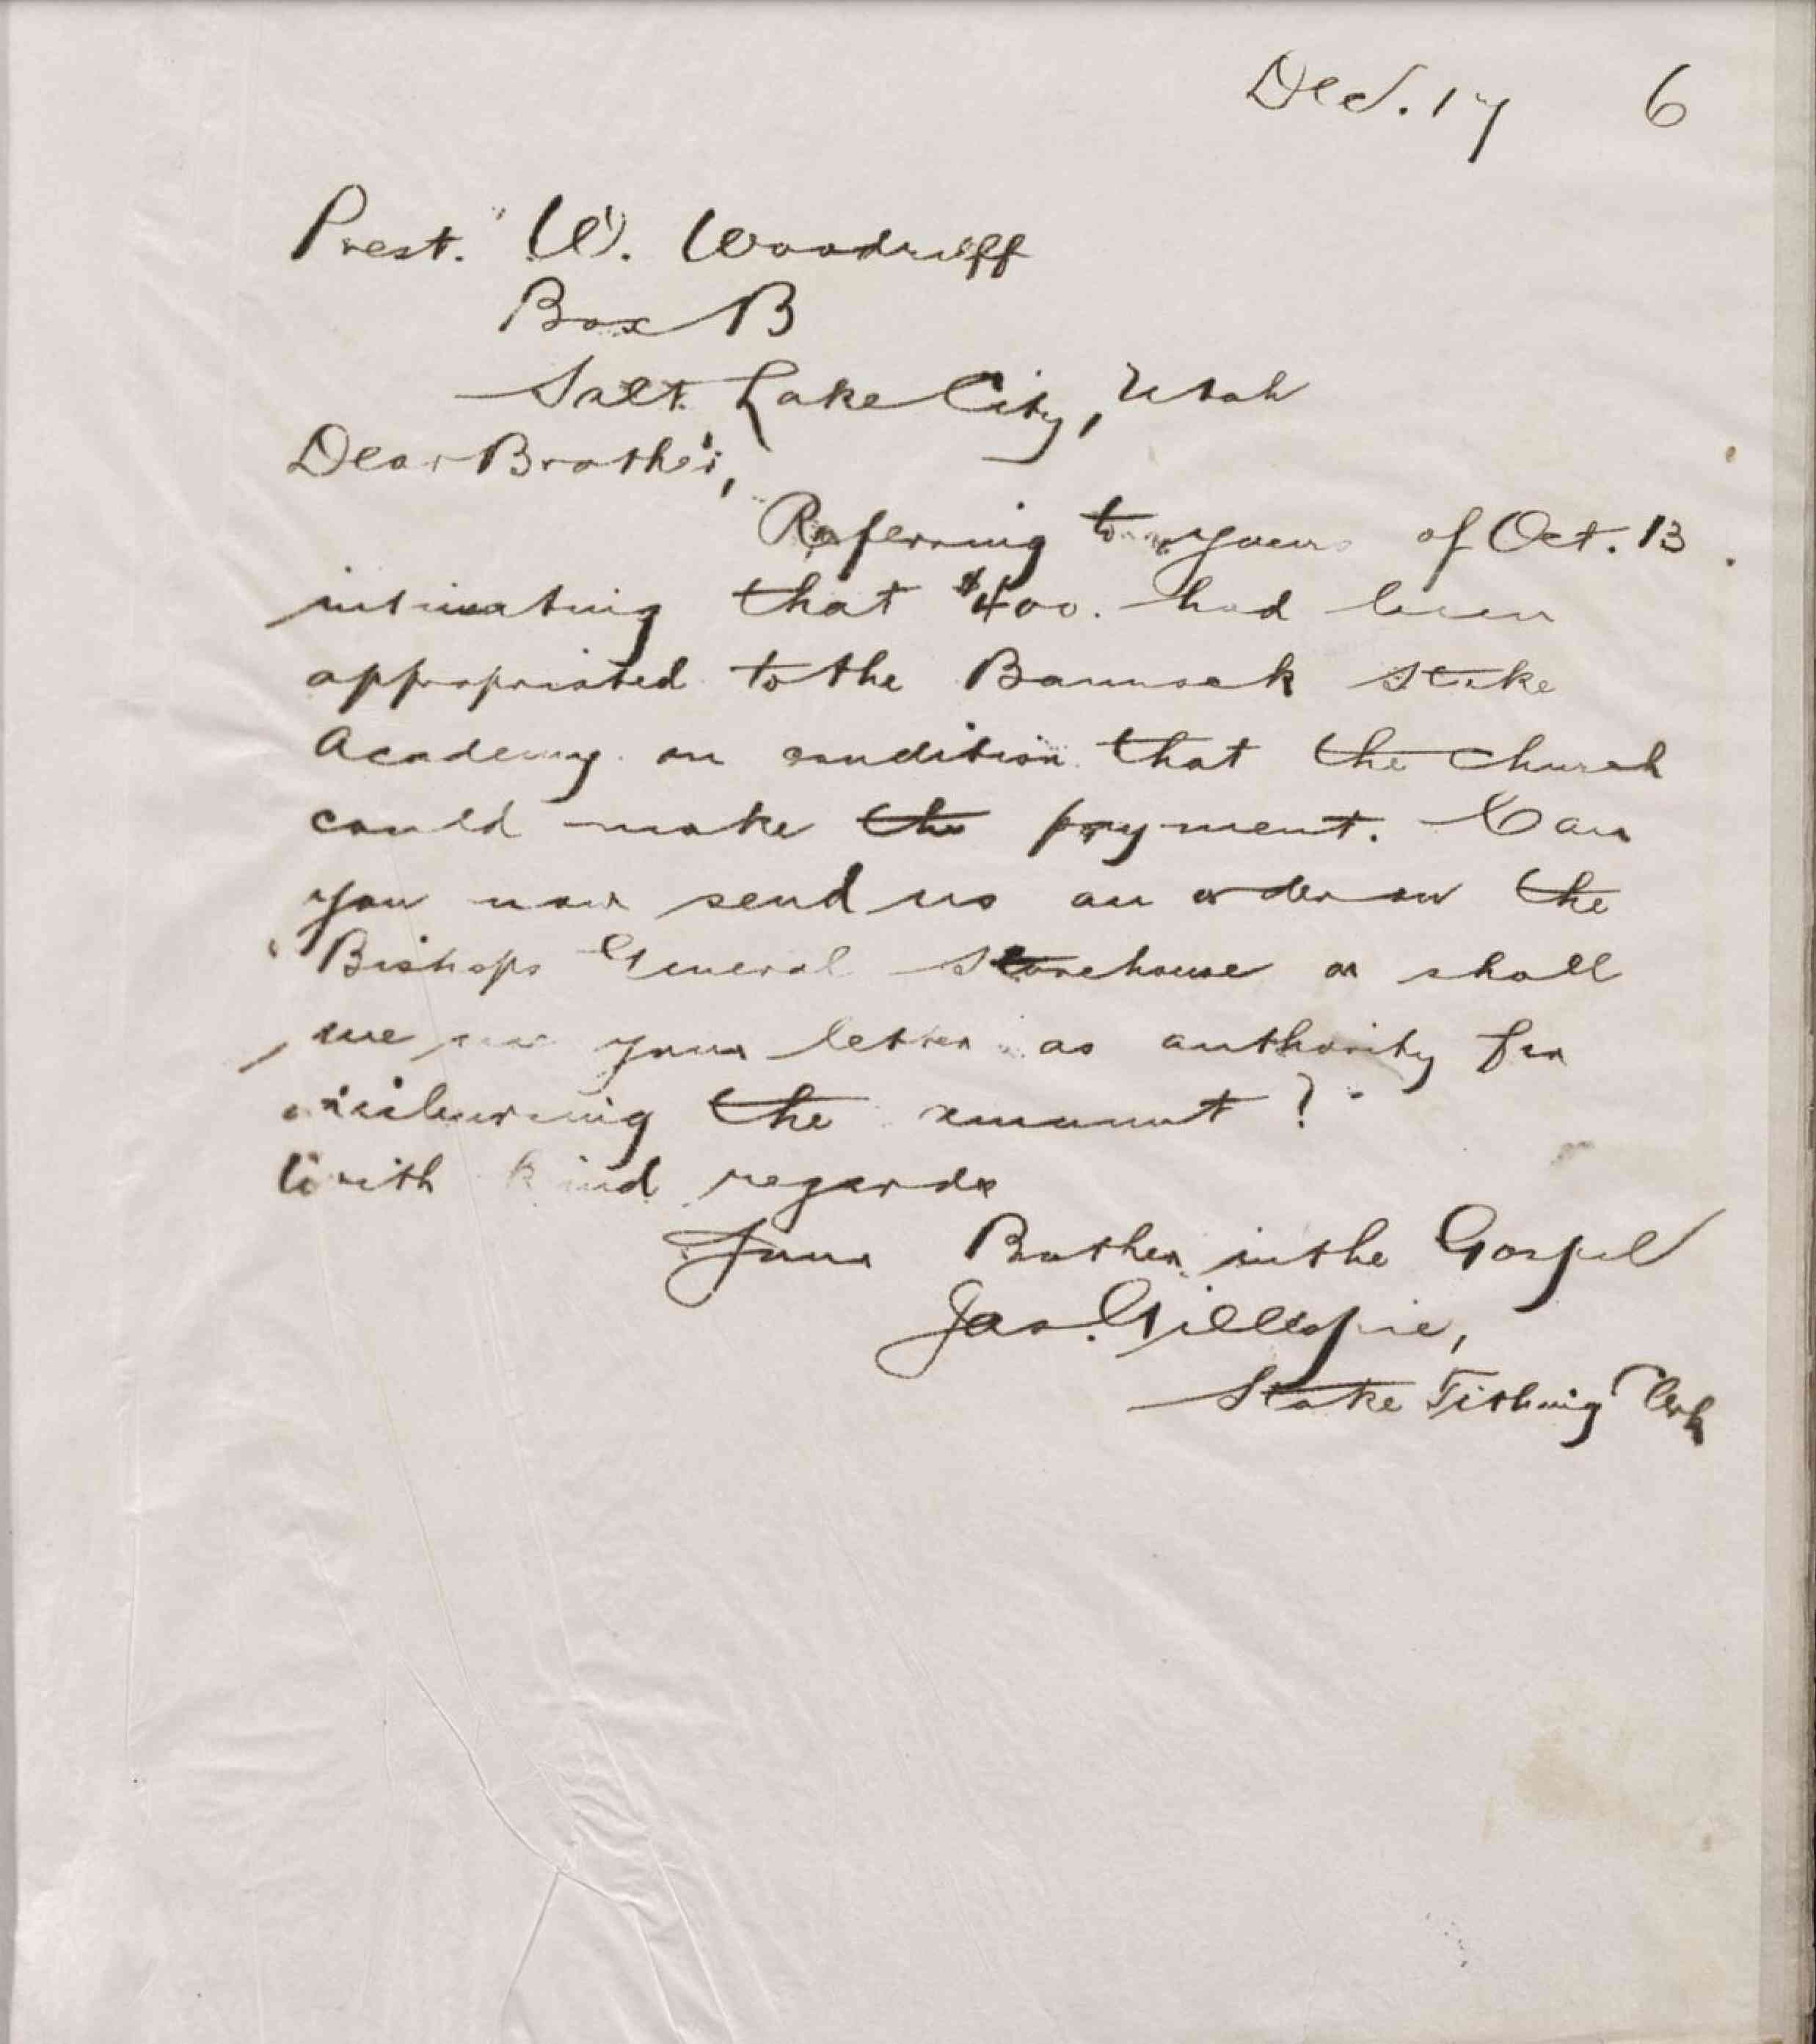 Dec. 17 6
Prest. W. Woodruff
Box B
Salt Lake City, Utah
Dear Brother,
Referring to yours of Oct. 13
intimating that $400. had been
appropriated to the Bannock Stake
Academy on condition that the church
could make the payment. Can
you now send us an order on the
Bishops General Storehouse or shall
we use your letter as authority for
disbursing the amount?
With kind regards
Your Brother in the Gospel
Jas. Gillespie,
Stake Tithing Clerk